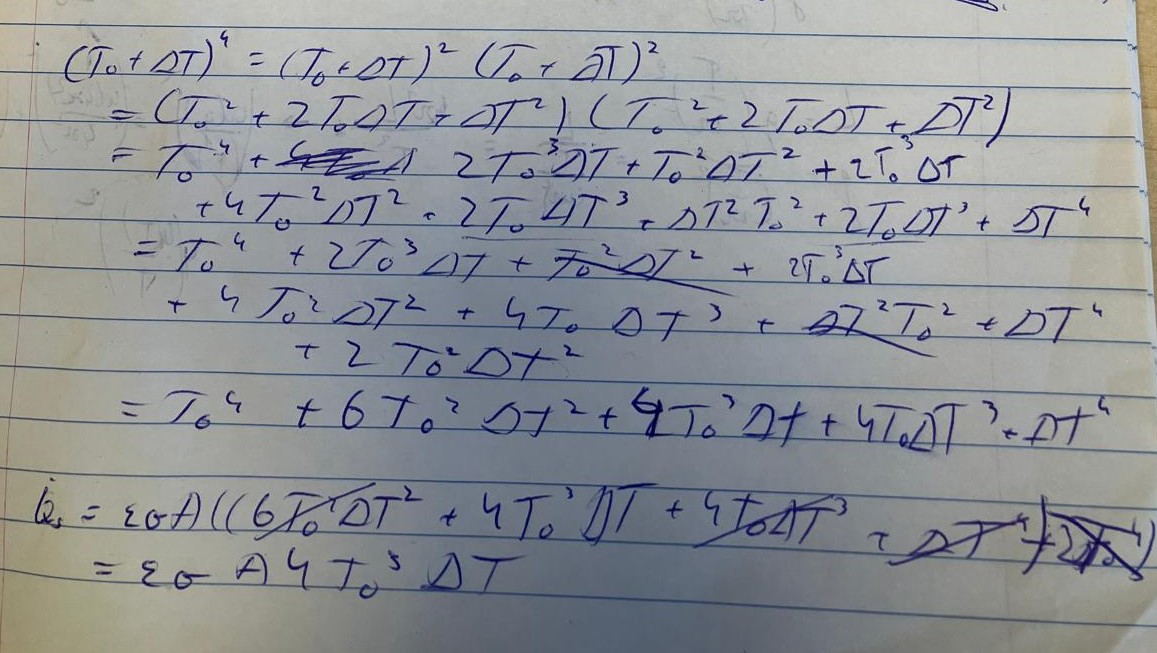 (T₀ + ΔT)⁴ = (T₀ + ΔT)² (T₀ + ΔT)²
= (T₀² + 2T₀ΔT + ΔT²) (T₀² + 2T₀ΔT + ΔT²)
= T₀⁴ + 2T₀³ΔT + T₀²ΔT² + 2T₀³ΔT
+ 4T₀²ΔT² + 2T₀ΔT³ + ΔT²T₀² + 2T₀ΔT³ + ΔT⁴
= T₀⁴ + 2T₀³ΔT + T₀²ΔT² + 2T₀³ΔT
+ 4T₀²ΔT² + 4T₀ΔT³ + ΔT²T₀² + ΔT⁴
+ 2T₀²ΔT²
= T₀⁴ + 6T₀²ΔT² + 4T₀³ΔT + 4T₀ΔT³ + ΔT⁴
= εσA((6T₀²ΔT² + 4T₀³ΔT + 4T₀ΔT³ + ΔT⁴)
= εσA4T₀³ΔT